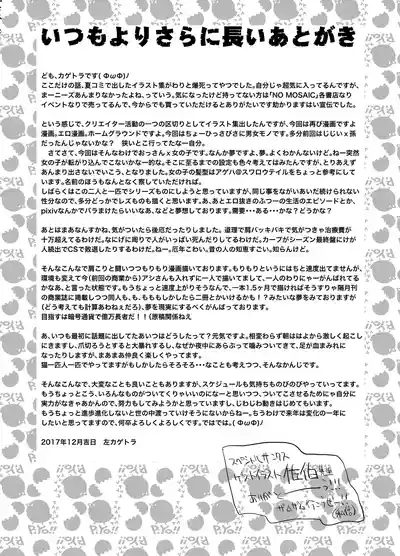 いつもよりさらに長いあとがき
ども、カゲトラです(ΦωΦ)ﾉ
ここだけの話、夏コミで出したイラスト集がわりと爆死ってやつでした。自分じゃ超気に入ってるんですが、
まーニーズあんまなかったよね、っていう。気になったけど持ってない方は「NO MOSAIC」各書店なり
イベントなりで売ってるんで、今からでも買っていただけるとありがたいです助かりますはい宣伝でした。
という感じで、クリエイター活動の一つの区切りとしてイラスト集出したんですが、今回は再び漫画ですよ
漫画。エロ漫画。ホームグラウンドですよ。今回はちょーひっさびさに男女モノですよ。多分前回はじじい×孫
だったんじゃないかな？　狭いとこ行ってたな自分。
さてさて、今回はそんなわけでおっさん×女の子です。なんか夢ですよ、夢。よくわかんないけど。ねー突然
女の子が転がり込んでこないかなー的な。そこに至るまでの設定も色々考えてはみたんですが、とりあえず
あんまり出さないでいこう、となりました。女の子の髪型はアゲハ@スワロウテイルをちょっと参考にして
います。名前のほうもなんとなく察していただければ。
しばらくはこの二人と一匹でシリーズものにしようと思っていますが、同じ事をながいあいだ続けられない
性分なので、多分どっかでレズものも描くと思います。あ、あとエロ抜きのふつーの生活のエピソードとか、
pixivなんかでバラまけたらいいなあ、などと夢想しております。需要・・・ある・・・かな？どうかな？
あとはまあなんすかね、気がついたら後厄だったりしました。道理で肩バッキバキで気づきゃ治療費が
十万超えてるわけだ。なにげに周りで人がいっぱい死んだりしてるわけだ。カープがシーズン最終盤にけが
人続出でCSで敗退したりするわけだ。ねー。厄年こわい。昔の人の知恵すごい。知らんけど。
そんなこんなで肩こりと闘いつつもりもり漫画描いております。もりもりというにはちと速度出てませんが、
環境も変えて今(前回の商業から)アシさんも入れずに一人で描いてまして、一人のわりにゃーがんばれてる
かなあ、と言った状態です。もうちょっと速度上がりそうなんで、一本1.5ヶ月で描ければそうすりゃ隔月刊
の商業誌に掲載しつつ同人も、も、もももしかしたら二冊とかいけるかも！？みたいな夢をみております
(どう考えても計算あわねぇだろ)。夢を現実にするべくがんばっております。
目指すは暗号通貨で億万長者だ！！(原稿関係ねえ
あ、いつも最初に話題に出してたあいつはどうしたって？元気ですよ。相変わらず朝はほよから激しく起こし
にきますし、爪切ろうとすると大暴れするし、なぜか夜中にあらぶって噛みついてきて、足が血まみれに
なったりしますが、まあまあ仲良く楽しくやってます。
猫一匹人一匹でやってますがもしかしたらそろそろ・・・なことも考えつつ、そんなかんじです。
そんなこんなで、大変なこともも良いこともありますが、スケジュールも気持ちもものびのびやっていってます。
もうちょっとこう、いろんなものがついてくりゃいいのになーと思いつつ、ついてこさせるためにゃ自分に
実力がなきゃあかんので、努力もしてみようかと思っていますし、じわじわ動きはじめています。
もうちょっと進歩進化しないと世の中渡っていけそうにないからねー。ちうわけで来年は変化の一年に
したいと思ってますので、何卒よろしくよろしくです。ではでは。(ΦωΦ)ﾉ
2017年12月吉日　左カゲトラ
スペシャルサンクス
ゲストイラスト 佐伯
ありがとーーっ!!